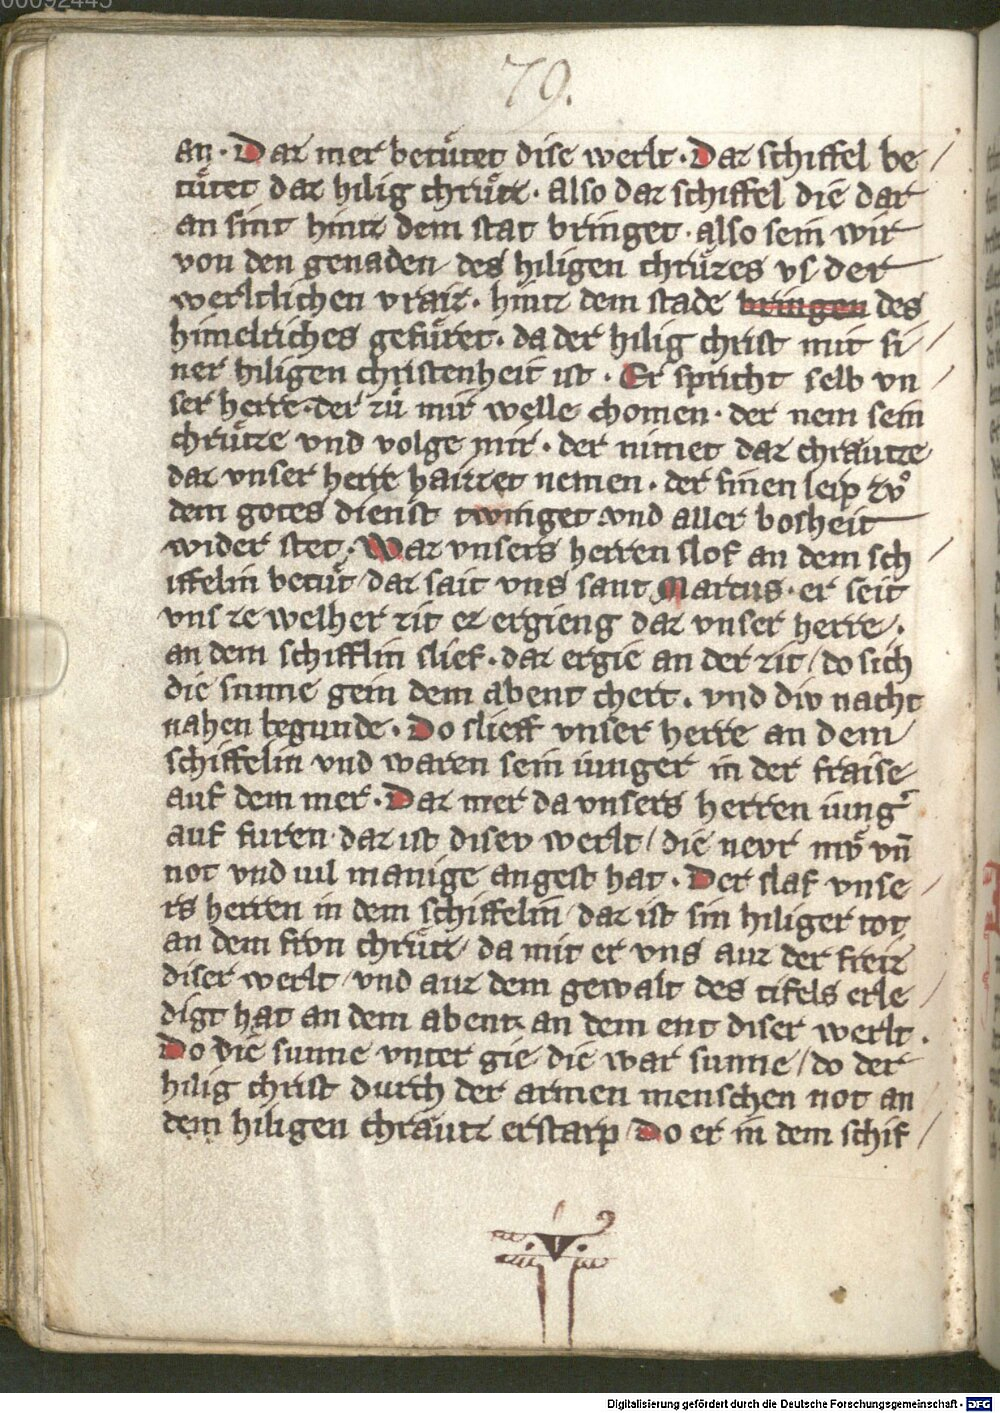 00092445
79.
an · Daz mer betuͤtet dise werlt · Daz schiffel be/
tuͤtet daz hilig chruͤtz · also daz schiffel die dar
an sint hintz dem stat bringet · also sein wir
von den genaden des hiligen chruͤzes vs der
werltlichen vraiz · hintz dem stade bringen des
himelriches gefuͤret · da der hilig christ mit si/
ner hiligen christenheit ist · Er spricht selb vn/
ser herre · der zuͤ mir welle chomen · der nem sein
chruͤtze vnd volge mir · der nimet daz chraͤutze
daz vnser herre haizzet nemen · der sinen leip zvͦ
dem gotes dienst twinget vnd aller bosheit
wider stet · Waz vnsers herren slof an dem sch/
iffelin betuͤt / daz sait vns sant Marcus · er seit
vns ze welher zit ez ergieng daz vnser herre ·
an dem schifflin slief · daz ergie an der zit / do sich
die sunne gein dem abent chert · vnd div nacht
nahen begunde · Do slieff vnser herre an dem/
schiffelin vnd waren sein iunger in der fraise
auf dem mer · Daz mer da vnsers herren iung̾
auf furen · daz ist disev werlt / die nevr mvͤ vn̄
not vnd uil manige angest hat · Der slaf vnse/
rs herren in dem schiffelin / daz ist sin hiliger tot
an dem fron chruͤtz / da mit er vns auz der freiz
diser werlt / vnd auz dem gewalt des tifels erle/
digt hat an dem abent · an dem ent diser werlt ·
Do die sunne vnter gie die war sunne / do der
hilig christ durch der armen menschen not an
dem hiligen chraͤutz erstarp / Do er in dem schif/
Digitalisierung gefördert durch die Deutsche Forschungsgemeinschaft - DFG